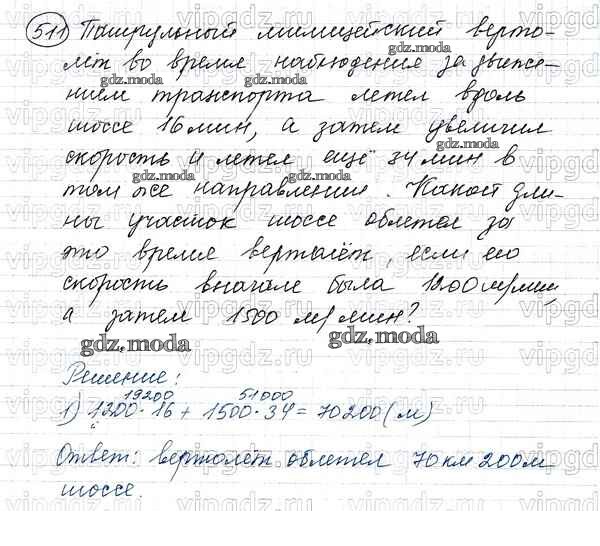 511 Патрульный милицейский верто-
лёт во время наблюдения за движе-
нием транспорта летел вдоль
шоссе 16 мин, а затем увеличил
скорость и летел ещё 34 мин в
том же направлении. Какой дли-
ны участок шоссе облетел за
это время вертолёт, если его
скорость вначале была 1200 м/мин,
а затем 1500 м/мин?
gdz.moda
Решение:
19200 51000
1) 1200 · 16 + 1500 · 34 = 70200 (м)
Ответ: вертолёт облетел 70 км 200 м
шоссе.